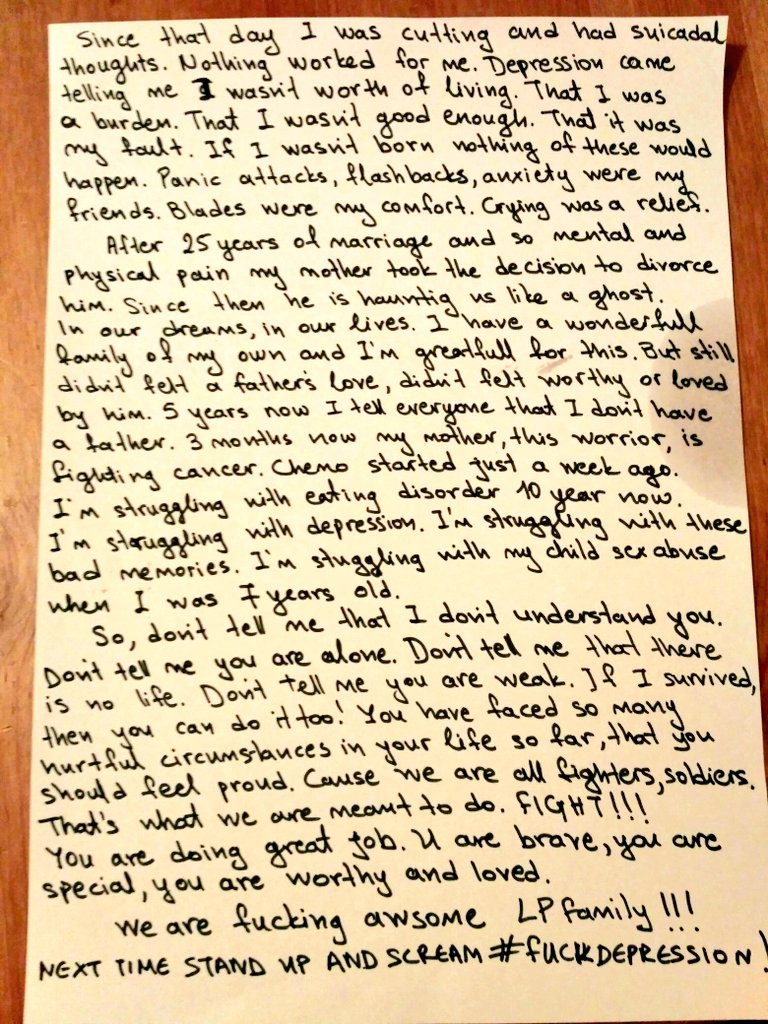 Since that day I was cutting and had suicadal
thoughts. Nothing worked for me. Depression came
telling me I wasn't worth of living. That I was
a burden. That I wasn't good enough. That it was
my fault. If I wasn't born nothing of these would
happen. Panic attacks, flashbacks, anxiety were my
friends. Blades were my comfort. Crying was a relief.
After 25 years of marriage and so mental and
physical pain my mother took the decision to divorce
him. Since then he is hauntig us like a ghost.
In our dreams, in our lives. I have a wonderfull
family of my own and I'm greatfull for this. But still
didn't felt a father's love, didn't felt worthy or loved
by him. 5 years now I tell everyone that I don't have
a father. 3 months now my mother, this worrior, is
fighting cancer. Chemo started just a week ago.
I'm struggling with eating disorder 10 year now.
I'm struggling with depression. I'm struggling with these
bad memories. I'm stuggling with my child sex abuse
when I was 7 years old.
So, don't tell me that I don't understand you.
Don't tell me you are alone. Don't tell me that there
is no life. Don't tell me you are weak. If I survived,
then you can do it too! You have faced so many
hurtful circumstances in your life so far, that you
should feel proud. Cause we are all fighters, soldiers.
That's what we are meant to do. FIGHT!!!
You are doing great job. U are brave, you are
special, you are worthy and loved.
We are fucking awsome LP family!!!
NEXT TIME STAND UP AND SCREAM #FUCKDEPRESSION!